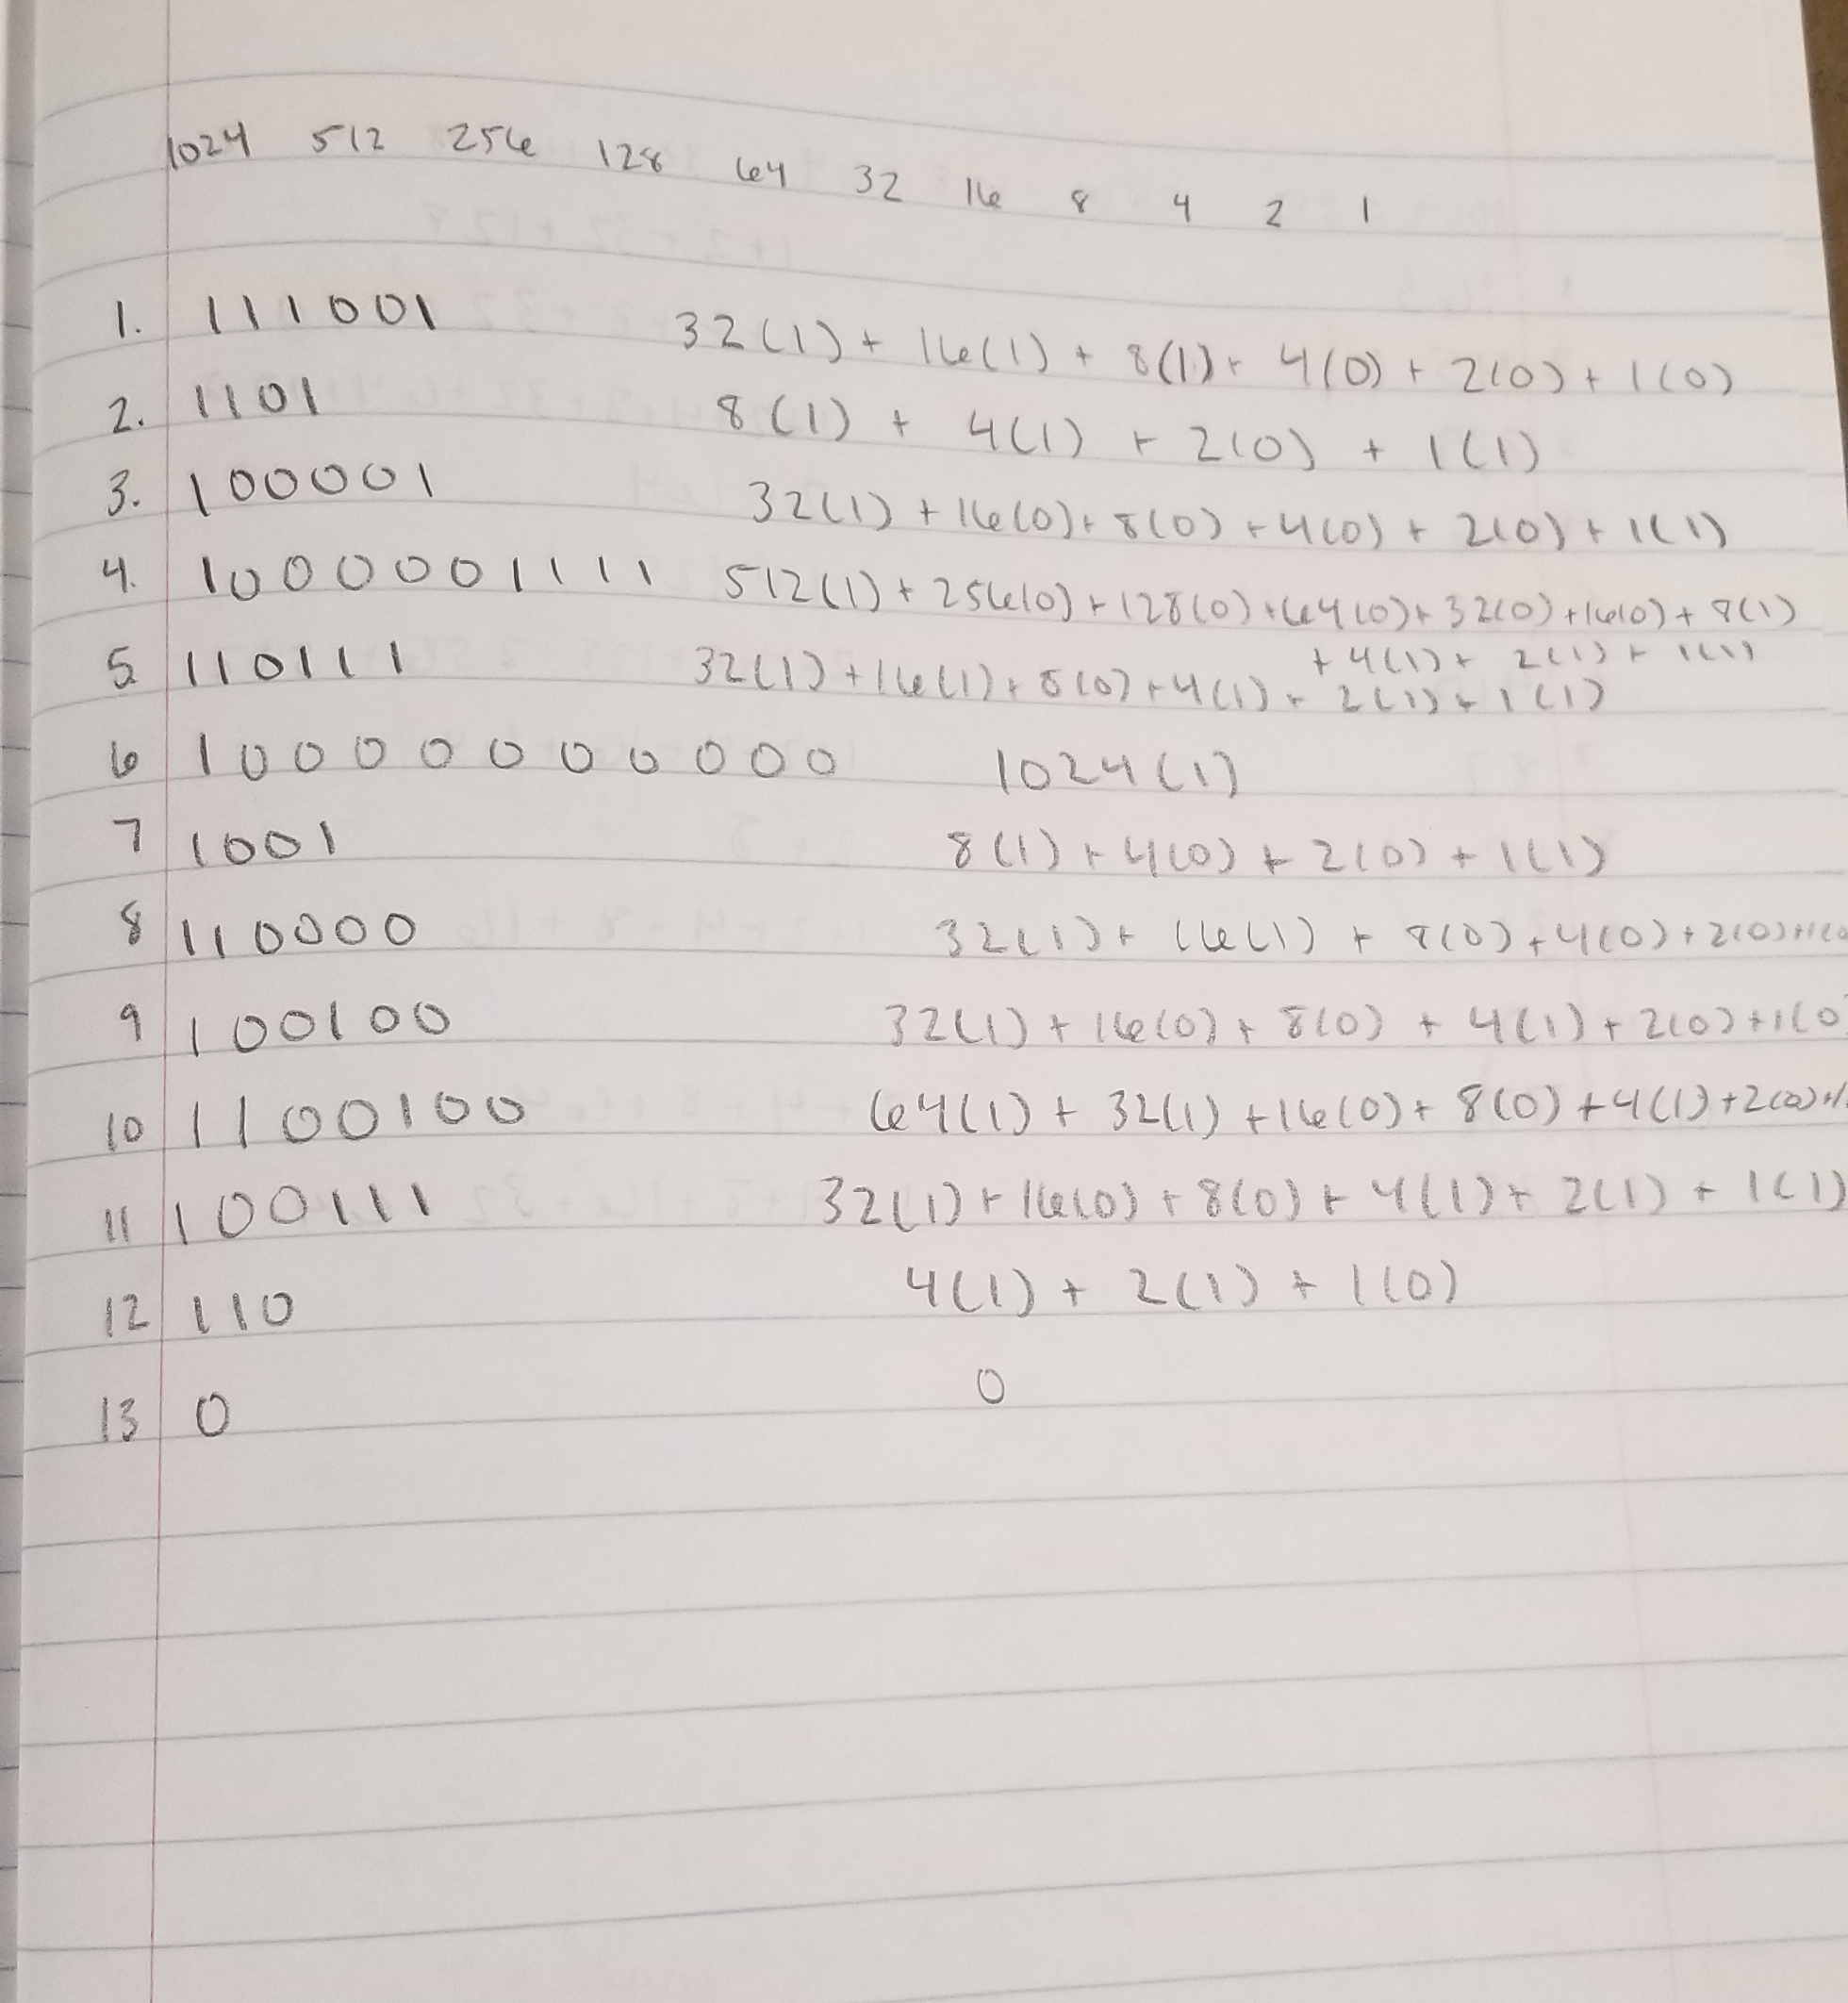 1024 512 256 128 64 32 16 8 4 2 1
1. 111001 32(1) + 16(1) + 8(1) + 4(0) + 2(0) + 1(0)
2. 1101 8(1) + 4(1) + 2(0) + 1(1)
3. 100001 32(1) + 16(0) + 8(0) + 4(0) + 2(0) + 1(1)
4. 1000001111 512(1) + 256(0) + 128(0) + 64(0) + 32(0) + 16(0) + 8(1)
+ 4(1) + 2(1) + 1(1)
5 110111 32(1) + 16(1) + 8(0) + 4(1) + 2(1) + 1(1)
6 10000000000 1024(1)
7 1001 8(1) + 4(0) + 2(0) + 1(1)
8 110000 32(1) + 16(1) + 8(0) + 4(0) + 2(0) + 1(0
9 100100 32(1) + 16(0) + 8(0) + 4(1) + 2(0) + 1(0
10 1100100 64(1) + 32(1) + 16(0) + 8(0) + 4(1) + 2(0) + 1
11 100111 32(1) + 16(0) + 8(0) + 4(1) + 2(1) + 1(1)
12 110 4(1) + 2(1) + 1(0)
13 0 0